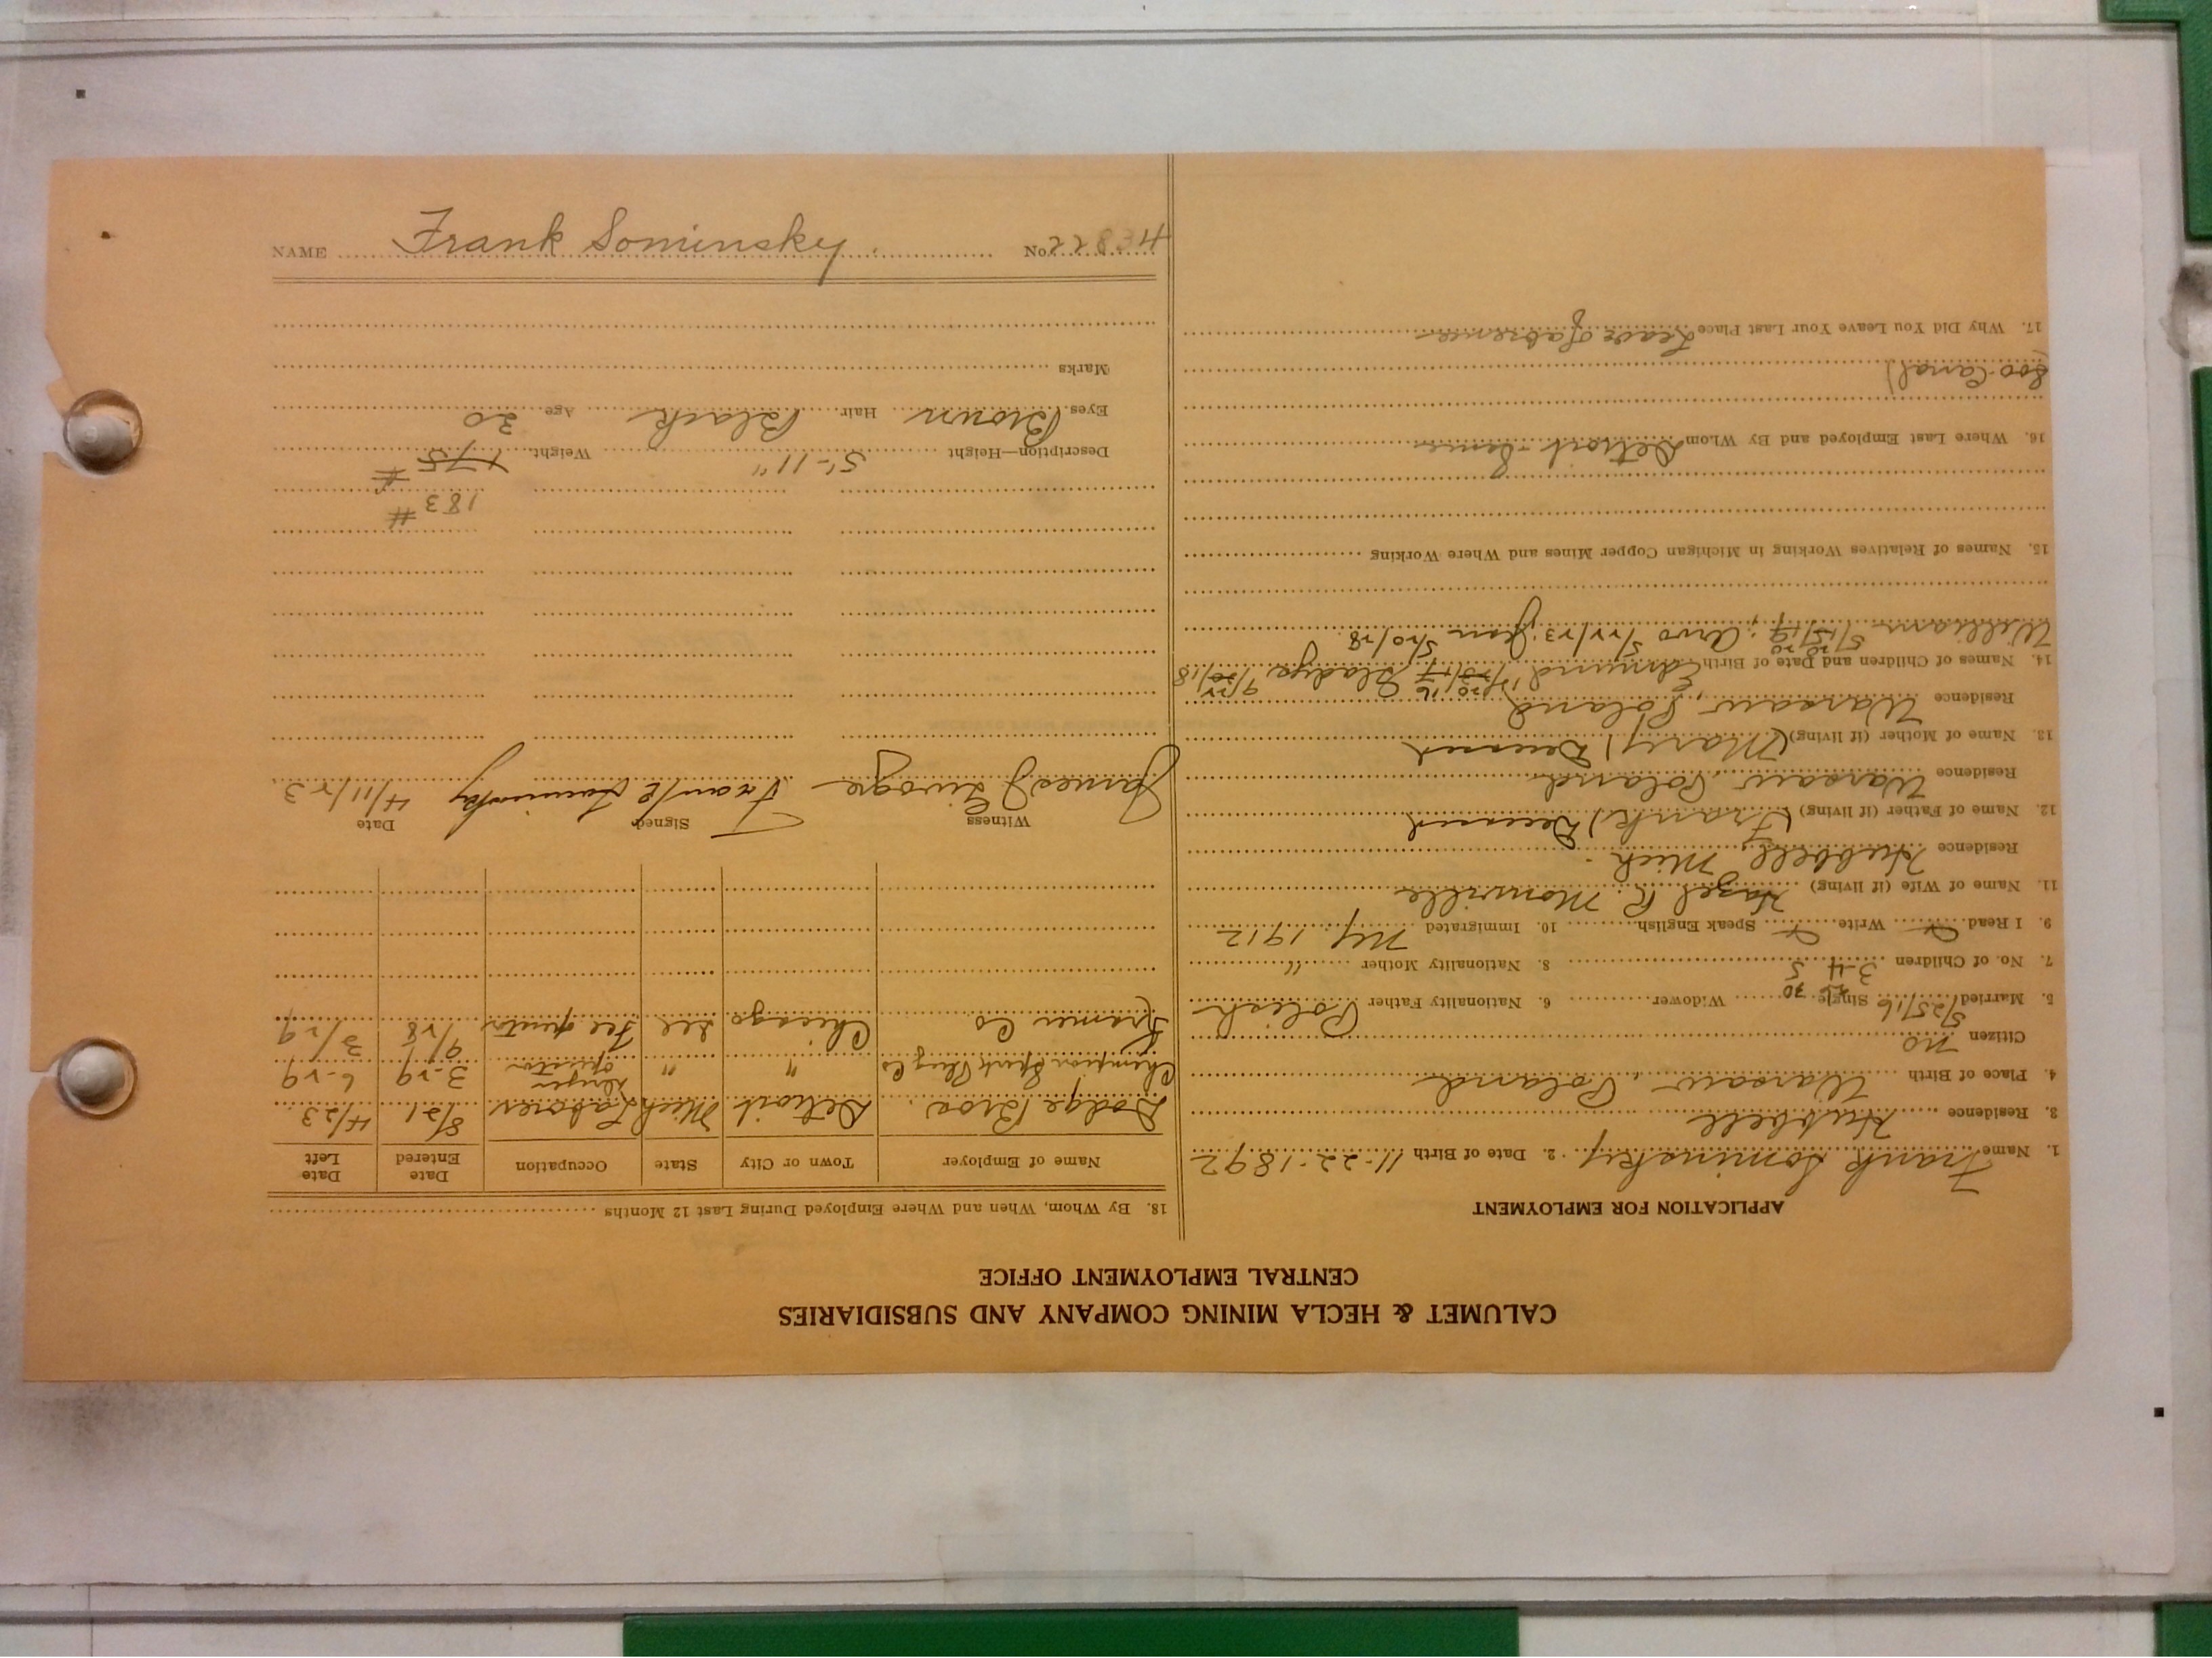 NAME Frank Sominsky. No.
CALUMET & HECLA MINING COMPANY AND SUBSIDIARIES
CENTRAL EMPLOYMENT OFFICE
APPLICATION FOR EMPLOYMENT
1. Name Frank Sominsky 2. Date of Birth 11-22-1892
3. Residence Hubbell
4. Place of Birth Warsaw, Poland
Citizen no
5. Married 5/25/16 Single Widower 6. Nationality Father Polish
7. No. of Children 3 4 5 8. Nationality Mother "
9. I Read Write Speak English 10. Immigrated Ny. 1912
11. Name of Wife (if living) Hazel R. Monville
Residence Hubbell, Mich.
12. Name of Father (if living) (Frank) Deceased
Residence Warsaw, Poland
13. Name of Mother (if living) (Mary) Deceased
Residence Warsaw, Poland
14. Names of Children and Date of Birth Edmund Gladys
William Arvo 5/22/23; 5/20/28.
15. Names of Relatives Working in Michigan Copper Mines and Where Working
16. Where Last Employed and By Whom Detroit -
(Soo Canal)
17. Why Did You Leave Your Last Place Leave of absence
18. By Whom, When and Where Employed During Last 12 Months
Name of Employer Town or City State Occupation Date Entered Date Left
Dodge Bros. Detroit Mich Laborer 8/21 4/23
Champion Spark Plug Co " " operator 3-29 6-29
Kramer Co Chicago Ill operator 9/28 3/29
Witness Signed Date
James J Frank Sominsky 4/11/23.
183 #
Description—Height 5'-11" Weight 175 #
Eyes Brown Hair Black Age 30
Marks